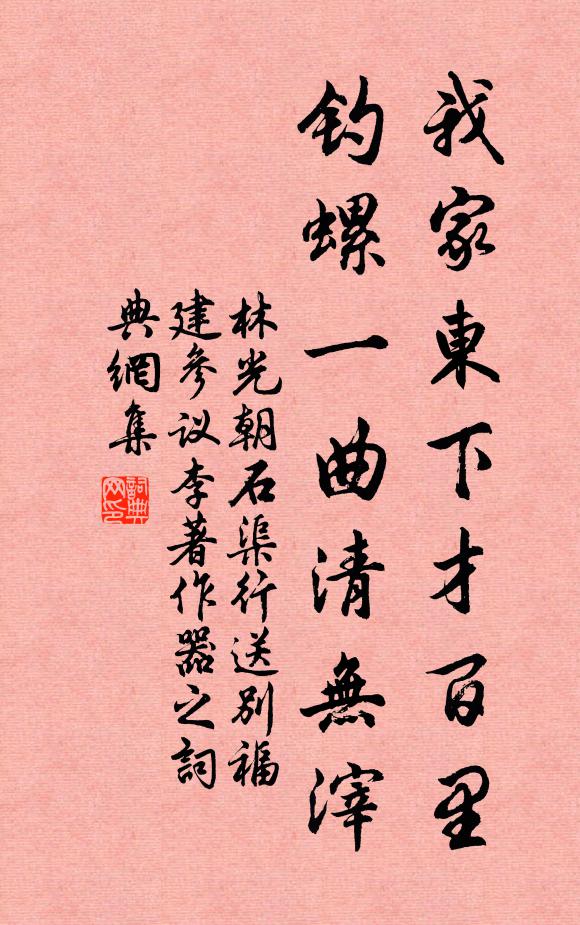 我家東下才百里
釣螺一曲清無滓
林光朝石渠行送別福
建參议李著作器之詞
典網集
詞典網印